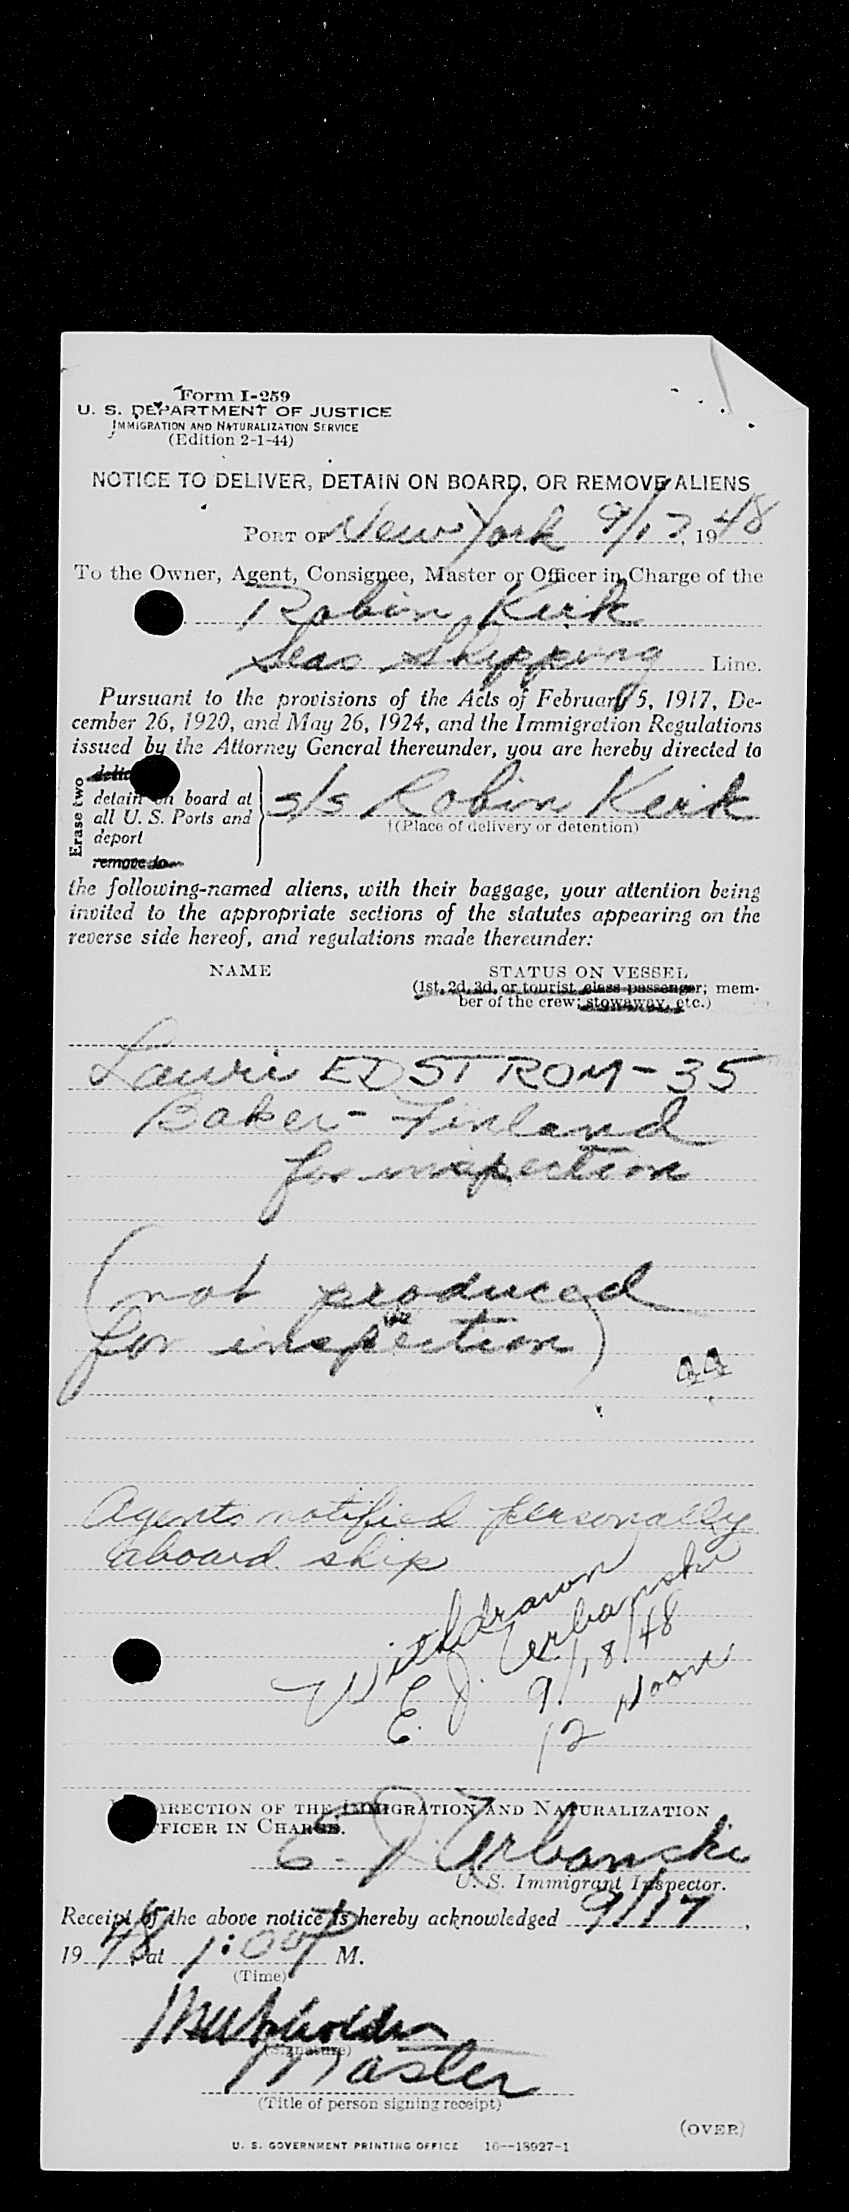 Form I-259
U. S. DEPARTMENT OF JUSTICE
IMMIGRATION AND NATURALIZATION SERVICE
(Edition 2-1-44)
NOTICE TO DELIVER, DETAIN ON BOARD, OR REMOVE ALIENS
PORT OF New York 9/17, 1948
To the Owner, Agent, Consignee, Master or Officer in Charge of the
Robin Kirk
Seas Shipping Line.
Pursuant to the provisions of the Acts of February 5, 1917, De-
cember 26, 1920, and May 26, 1924, and the Immigration Regulations
issued by the Attorney General thereunder, you are hereby directed to
Erase two
detain on board at
all U. S. Ports and
deport
remove to
s/s Robin Kirk
†(Place of delivery or detention)
the following-named aliens, with their baggage, your attention being
invited to the appropriate sections of the statutes appearing on the
reverse side hereof, and regulations made thereunder:
NAME STATUS ON VESSEL
(1st, 2d, 3d, or tourist class passenger; mem-
ber of the crew; stowaway, etc.)
Lauri EDSTROM - 35
Baker - Finland
for inspection
(not produced
for inspection)
Agents notified personally
aboard ship
Withdrawn
E. J. Urbanski
9/18/48
12 Noon
DIRECTION OF THE IMMIGRATION AND NATURALIZATION
OFFICER IN CHARGE.
E. J. Urbanski
U. S. Immigrant Inspector.
Receipt of the above notice is hereby acknowledged 9/17,
1948, at 1:00 P M.
(Time)
(Signature)
Master
(Title of person signing receipt)
(OVER)
U. S. GOVERNMENT PRINTING OFFICE 16—13927-1